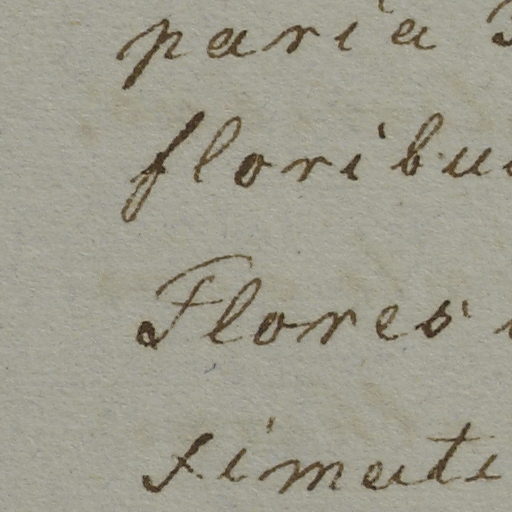 paria
floribus
Flores
simati